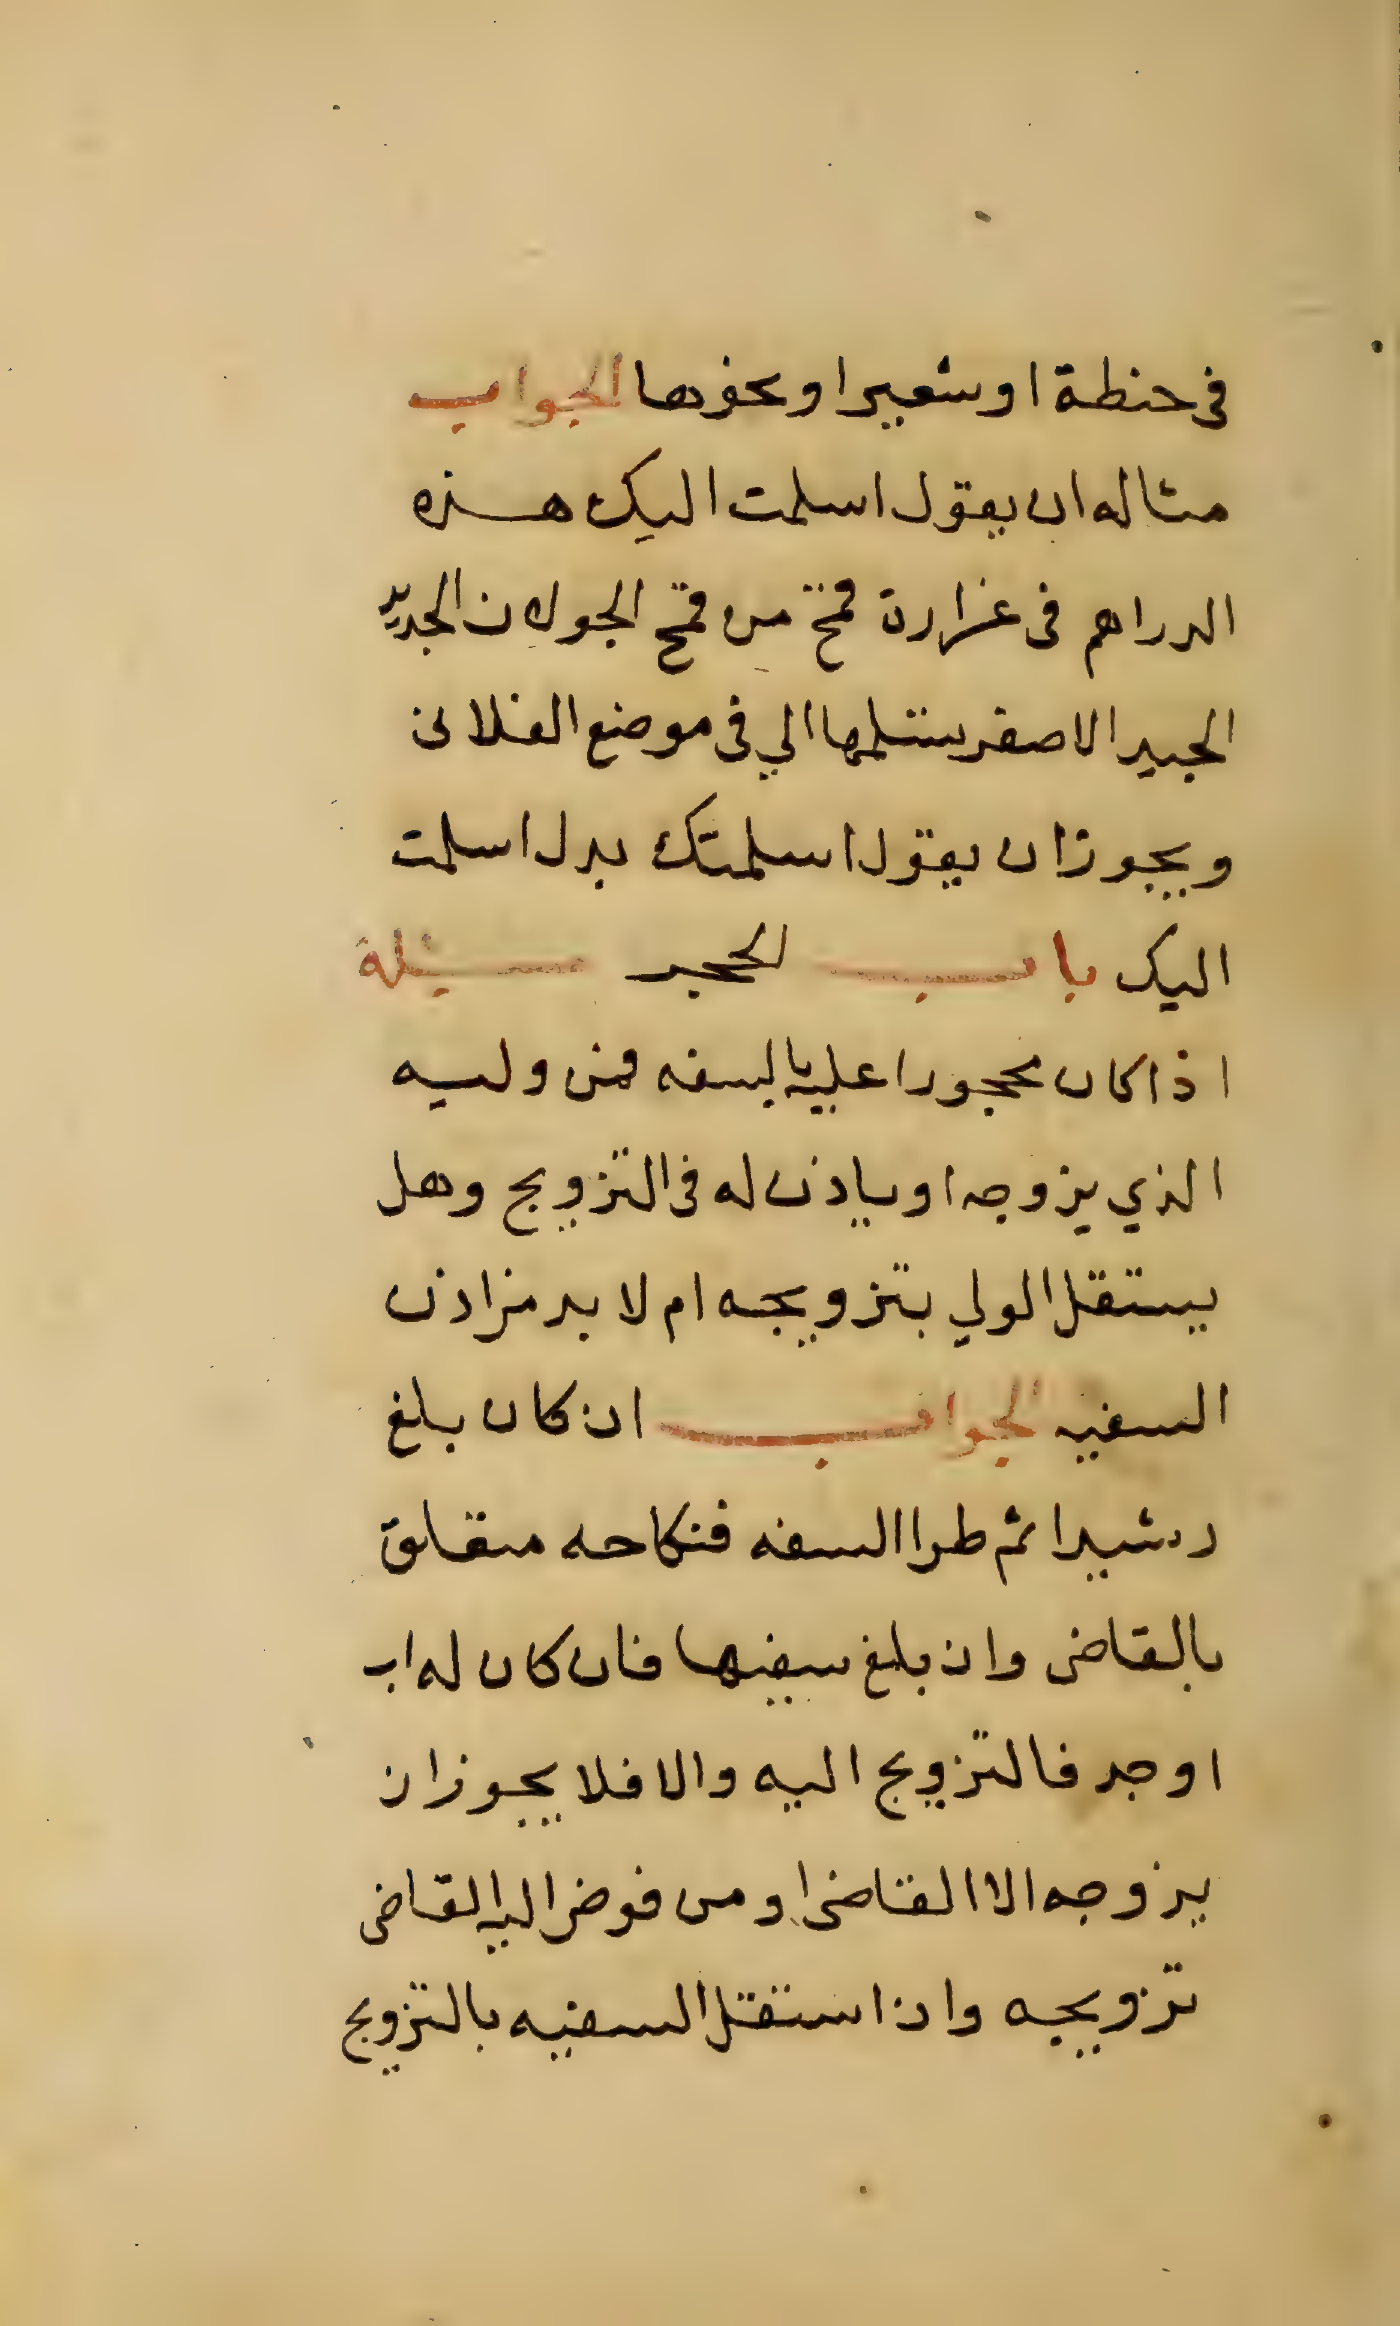 في حنطة او شعير او نحوها الجواب
مثاله ان يقول اسلمت اليك هذه
الدراهم في غرارة قمح من قمح الجولان الجديد
الجيد الاصفر ستسلمها الي في موضع الفلاني
ويجوز ان يقول اسلمتك بدل اسلمت
اليك باب الحجر مسئلة
اذا كان محجورا عليه بالسفه فمن وليه
الذي يزوجه او ياذن له في التزويج وهل
يستقل الولي بتزويجه ام لا بد من اذن
السفيه الجواب ان كان بلغ
رشيدا ثم طرا السفه فنكاحه متعلق
بالقاضي وان بلغ سفيها فان كان له اب
او جد فالتزويج اليه والا فلا يجوز ان
يزوجه الا القاضي او من فوض اليه القاضي
تزويجه واذا ستقل السفيه بالتزويج